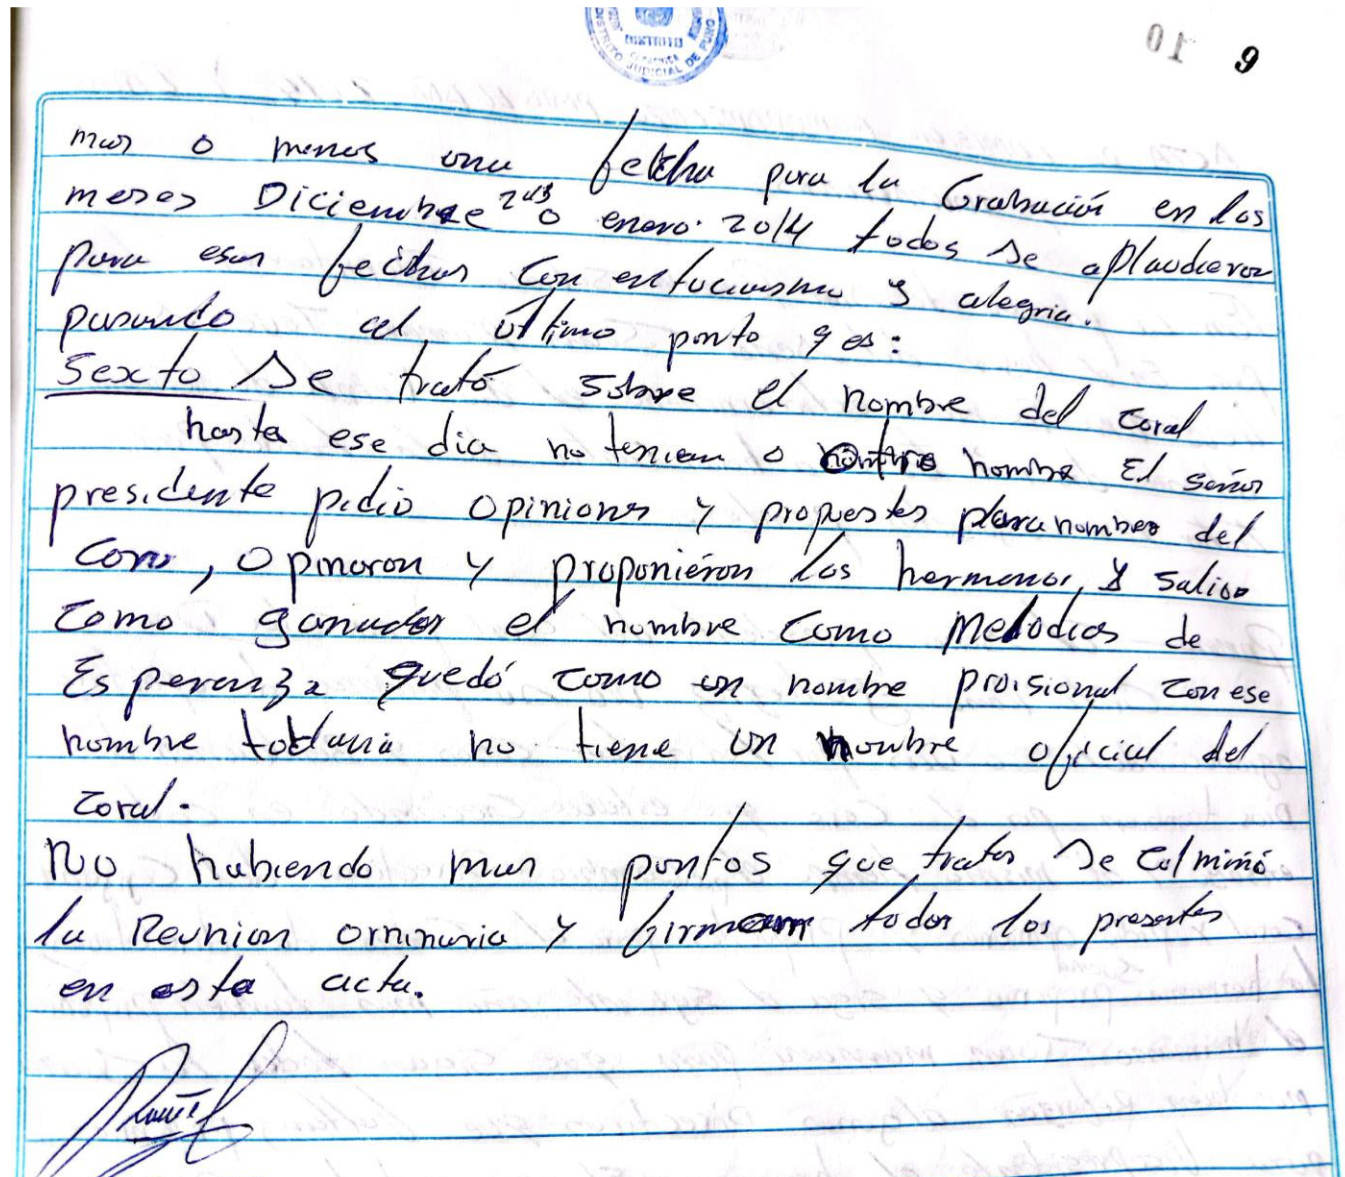 DISTRITO
DISTRITO JUDICIAL DE PUNO
10 9
mas o menos una fetcha para la Grabación en los
meses Diciembre 2013 o enero. 2014 todos se aplaudieron
para esas feichas con entuciasmo y alegria.
pasando al último punto q es:
Sexto Se trató sobre el nombre del coral
hasta ese dia no tenian o nombre El señor
presidente pidio Opiniones y propuestas para nombre del
Coro, Opinaron y proponierón los hermanos, y salioo
como ganador el nombre como Melodias de
Esperanza quedó como un nombre proisional con ese
nombre todavia no tiene un nombre oficial del
coral.
No habiendo mas puntos que tratar Se culminó
la Reunion orninaria y firmam todos los presentes
en esta acta.